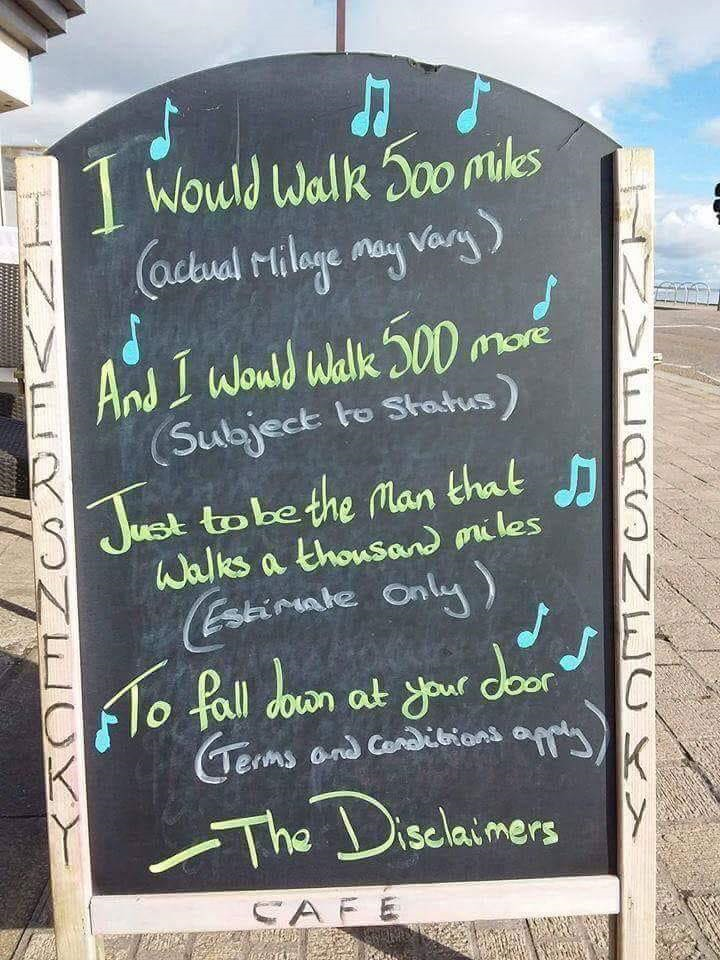 I Would Walk 500 miles
(actual Milage may Vary)
And I Would Walk 500 more
(Subject to Status)
Just to be the Man that
Walks a thousand miles
(Estimate only)
To fall down at your door
(Terms and Conditions apply)
- The Disclaimers
INVERSNECKY
INVERSNECKY
CAFÉ